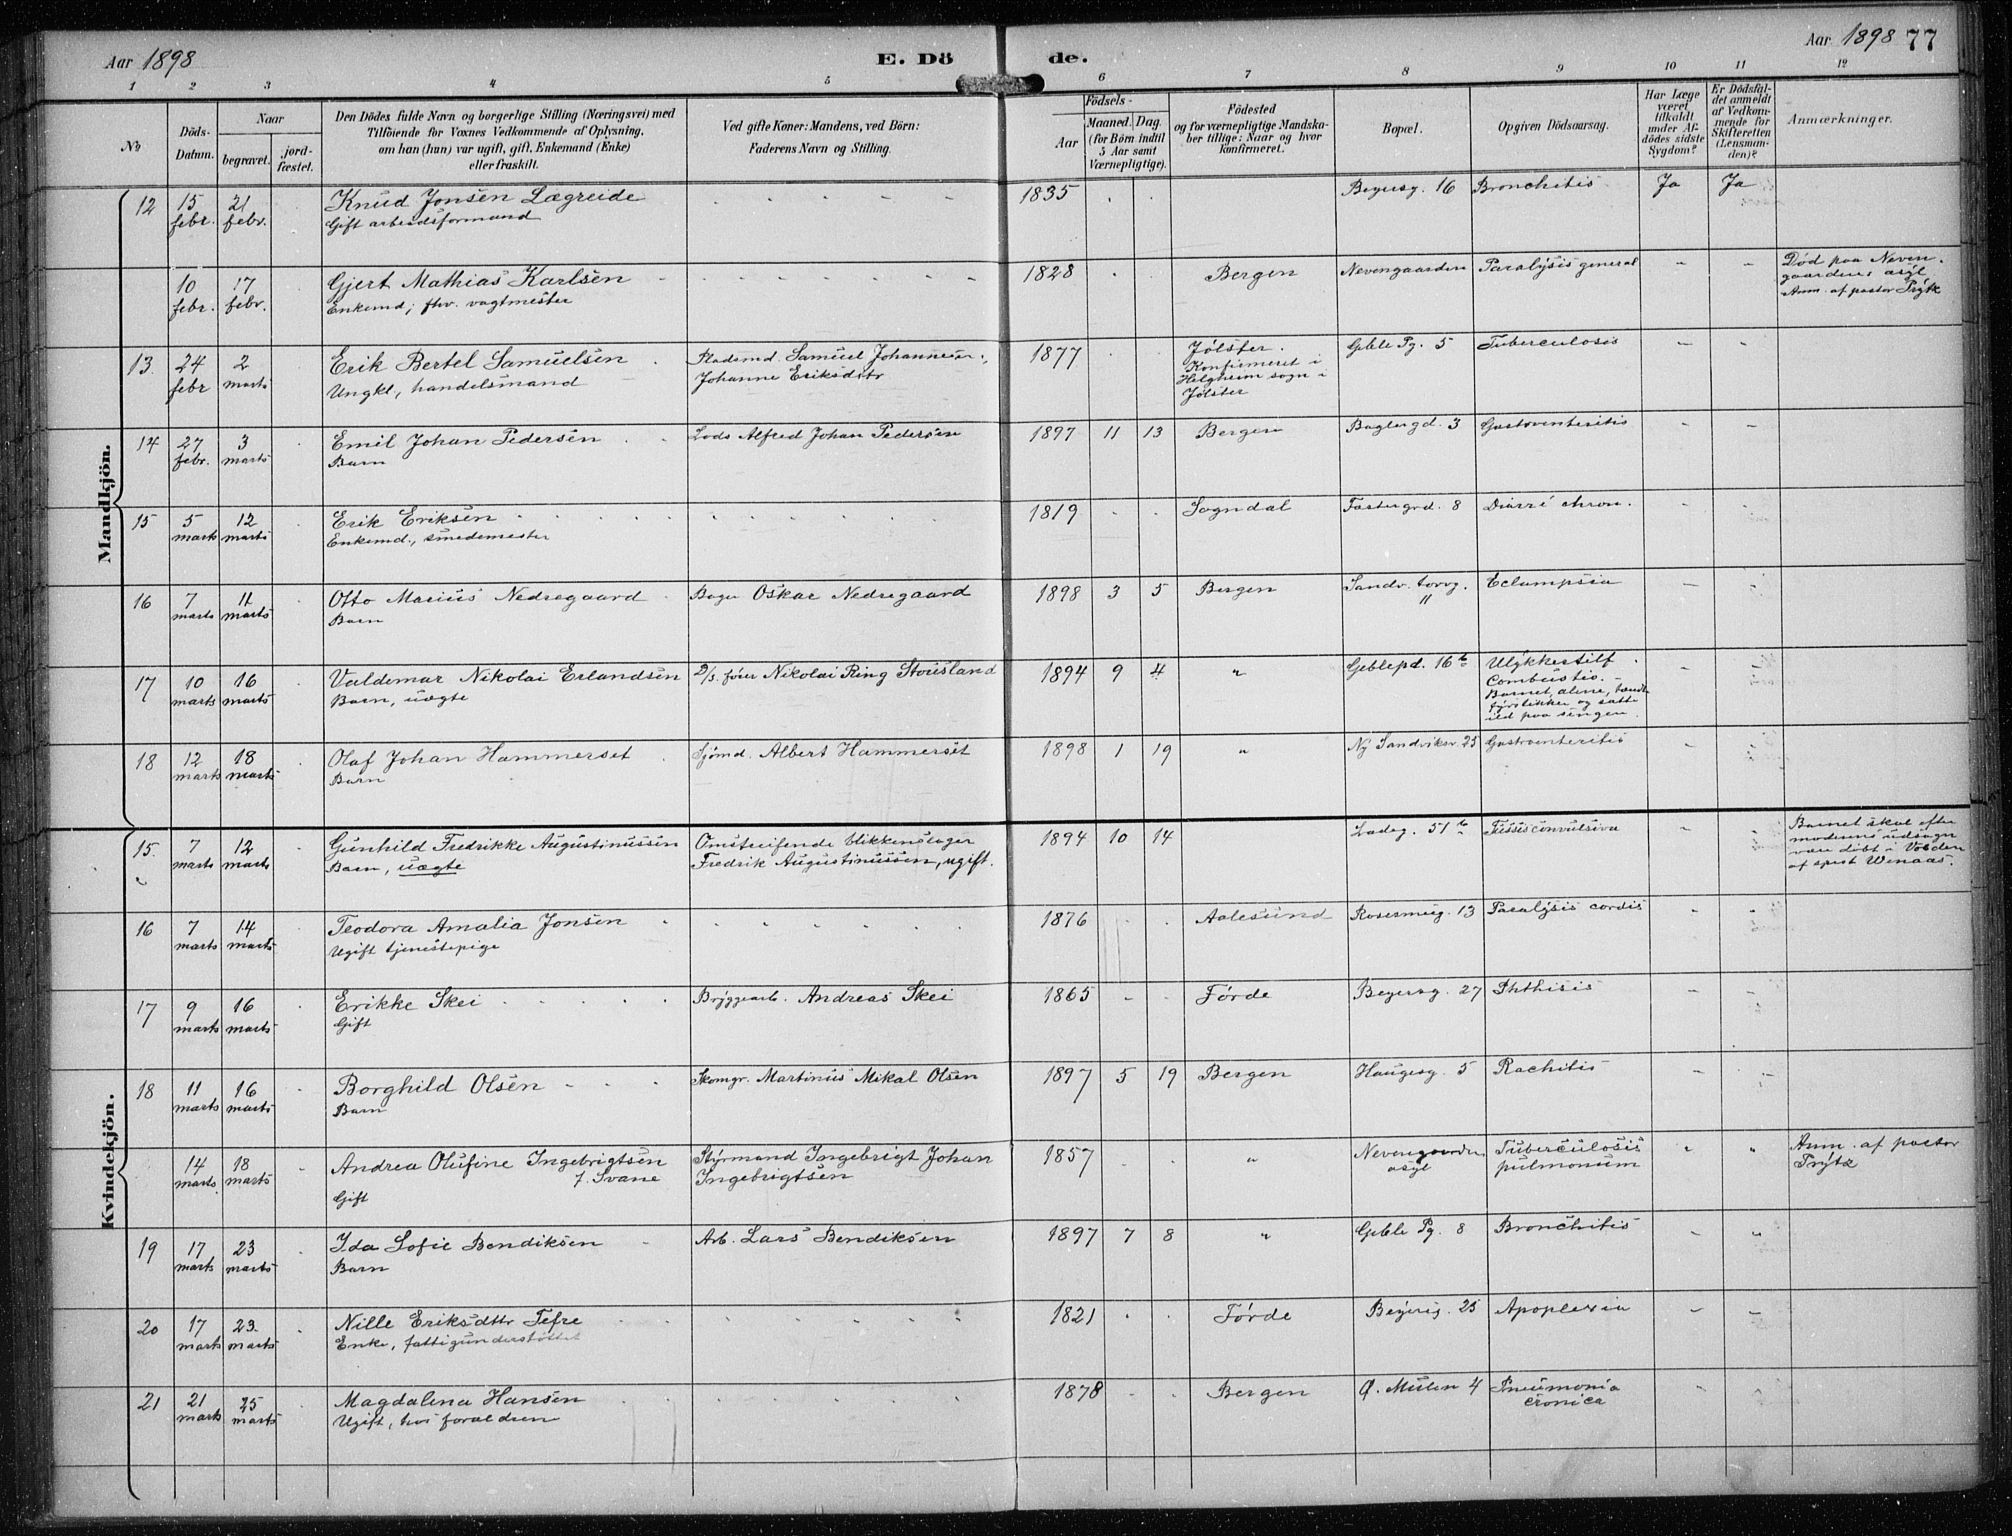 Aar 1898
E. Dö de.
Aar 1898 77
1 2 3 4 5 6 7 8 9 10 11 12
No
Döds-
Datum.
Naar
begravet.
jord-
fæstet.
Den Dödes fulde Navn og borgerlige Stilling (Næringsvei) med
Tilföiende for Voxnes Vedkommende af Oplysning,
om han (hun) var ugift, gift, Enkemand (Enke)
eller fraskilt.
Ved gifte Koner: Mandens, ved Börn:
Faderens Navn og Stilling.
Födsels-
Aar
Maaned. Dag.
(for Börn indtil
5 Aar samt
Værnepligtige).
Födested
og for værnepligtige Mandska-
ber tillige: Naar og hvor
konfirmeret.
Bopæl.
Opgiven Dödsaarsag.
Har Læge
været
tilkaldt
under Af-
dödes sidste
Sygdom?
Er Dödsfal-
det anmeldt
af Vedkom-
mende for
Skifteretten
(Lensman-
den)?
Anmærkninger.
Mandkjön.
12 15 febr. 21 febr. Knud Jonsen Lægreide
Gift arbeidsformand
1835 Beyersg. 16 Bronchitis Ja Ja
10 febr. 17 febr. Gjert Mathias Karlsen
Enkemd; fhv. vagtmester
1828 Bergen Nevengaarden Paralysis general " "
Död paa Neven-
gaardens asyl
Anm. af pastor Prytz
13. 24 febr 2 marts Erik Bertel Samuelsen
Ungkl, handelsmand
Pladsmd. Samuel Johannesen,
Johanne Eriksdttr
1877 Jölster.
Konfirmeret i
Helgheim sogn i
Jölster
Geble Pg. 5 Tuberculosis " "
14 27 febr. 3 marts Emil Johan Pedersen
Barn
Lods Alfred Johan Pedersen
1897 11 13 Bergen Baglergd. 3 Gastroenteritis " "
15 5 marts 12 marts Erik Eriksen
Enkemd., smedemester
1819 Sogndal Fostergrd. 8 Diarré chron. " "
16 7 marts 11 marts Otto Marius Nedregaard
Barn
Bager Oskar Nedregaard
1898 3 5 Bergen Sandv. torvg.
11
Eclampsia " "
17 10 marts 16 marts Valdemar Nikolai Erlandsen
Barn, uægte
D/s. förer Nikolai Ring Stousland
1894 9 4 " Geblepd. 16 b Ulykkestilf.
Combustio.
Barnet, alene, tændte
fyrstikker og satte
ild paa sengen.
" "
18 12 marts 18 marts Olaf Johan Hammerset
Barn
Sjömd. Albert Hammerset
1898 1 19 " Ny Sandviksv. 25 Gastroenteritis " "
Kvindekjön.
15. 7 marts 12 marts Gunhild Fredrikke Augustinussen
Barn, uægte
Omstreifende blikkenslager
Fredrik Augustinussen, ugift.
1894 10 14 Ladeg. 51 b Tussis convulsiva " "
Barnet skal efter
moderens udsagn
være döbt i Volden
af sprst Wenaas.
16 7 marts 14 marts Teodora Amalia Jonsen
Ugift tjenestepige
1876 Aalesund Rosesmug. 13 Paralysis cordis " "
17 9 marts 16 marts Erikke Skei
Gift
Bryggearb. Andreas Skei
1865 Förde Beyersg. 27 Phthisis " "
18 11 marts 16 marts Borghild Olsen
Barn
Skomgr. Martinus Mikal Olsen
1897 5 19 Bergen Haugesg. 5 Rachitis " "
14 marts. 18 marts Andrea Olufine Ingebrigtsen
f. Svane
Gift
Styrmand Ingebrigt Johan
Ingebrigtsen
1857 " Nevengaarden
asyl
Tuberculosis
pulmonum
" "
Anm. af pastor
Prytz
19 17 marts 23 marts Ida Sofie Bendiksen
Barn
Arb. Lars Bendiksen
1897 7 8 " Geble Pg. 8 Bronchitis " "
20 17 marts 23 marts Nille Eriksdttr Tefre
Enke, fattigunderstöttet
1821 Förde Beyersg. 25 Apoplexia " "
21 21 marts 25 marts Magdalena Hansen
Ugift, hos forældrene
1878 Bergen Ø. Mulen 4 Pneumonia
cronica
" "